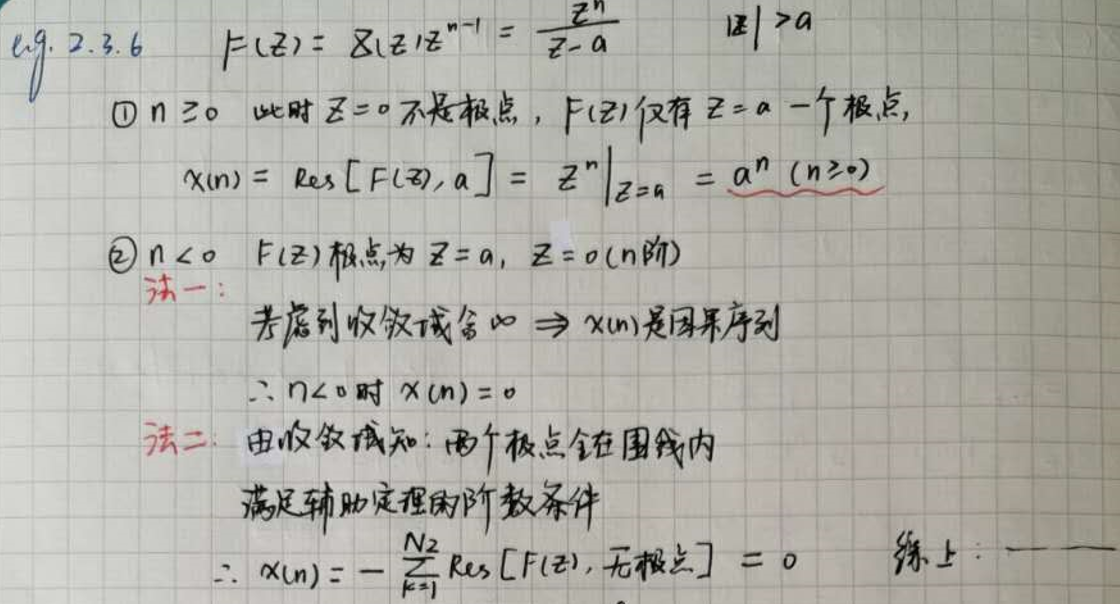 e.g. 2.3.6 F(z) = X(z)z^{n-1} = \frac{z^n}{z-a} |z| > a
① n ≥ 0 此时 z=0 不是极点, F(z)仅有 z=a 一个极点,
x(n) = Res[F(z), a] = z^n|_{z=a} = a^n (n≥0)
② n < 0 F(z)极点为 z=a, z=0(n阶)
法一:
考虑到收敛域含∞ ⇒ x(n)是因果序列
∴ n<0时 x(n)=0
法二: 由收敛域知: 两个极点全在围线内
满足辅助定理的阶数条件
∴ x(n) = - \sum_{k=1}^{N2} Res[F(z), 无极点] = 0 综上: ——